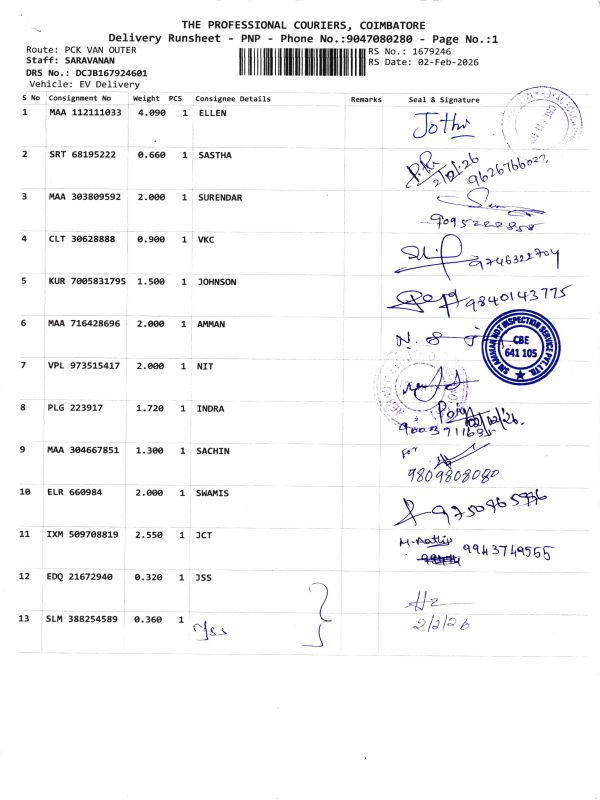 THE PROFESSIONAL COURIERS, COIMBATORE
Delivery Runsheet - PNP - Phone No.:9047080280 - Page No.:1
Route: PCK VAN OUTER
Staff: SARAVANAN
DRS No.: DCJB167924601
Vehicle: EV Delivery
RS No.: 1679246
RS Date: 02-Feb-2026
S No Consignment No Weight PCS Consignee Details Remarks Seal & Signature
1 MAA 112111033 4.090 1 ELLEN Jothi
2 SRT 68195222 0.660 1 SASTHA 2/02/26 9626766022
3 MAA 303809592 2.000 1 SURENDAR 9095222858
4 CLT 30628888 0.900 1 VKC 9746322704
5 KUR 7005831795 1.500 1 JOHNSON 9840143775
6 MAA 716428696 2.000 1 AMMAN N. S
SRI AMMAN NDT INSPECTION SERVICE PVT. LTD.
CBE
641 105
7 VPL 973515417 2.000 1 NIT
8 PLG 223917 1.720 1 INDRA 02/02/26.
9 MAA 304667851 1.300 1 SACHIN For
9809808080
10 ELR 660984 2.000 1 SWAMIS 9750965936
11 IXM 509708819 2.550 1 JCT 9943749555
12 EDQ 21672940 0.320 1 JSS
13 SLM 388254589 0.360 1 Jss 2/2/26